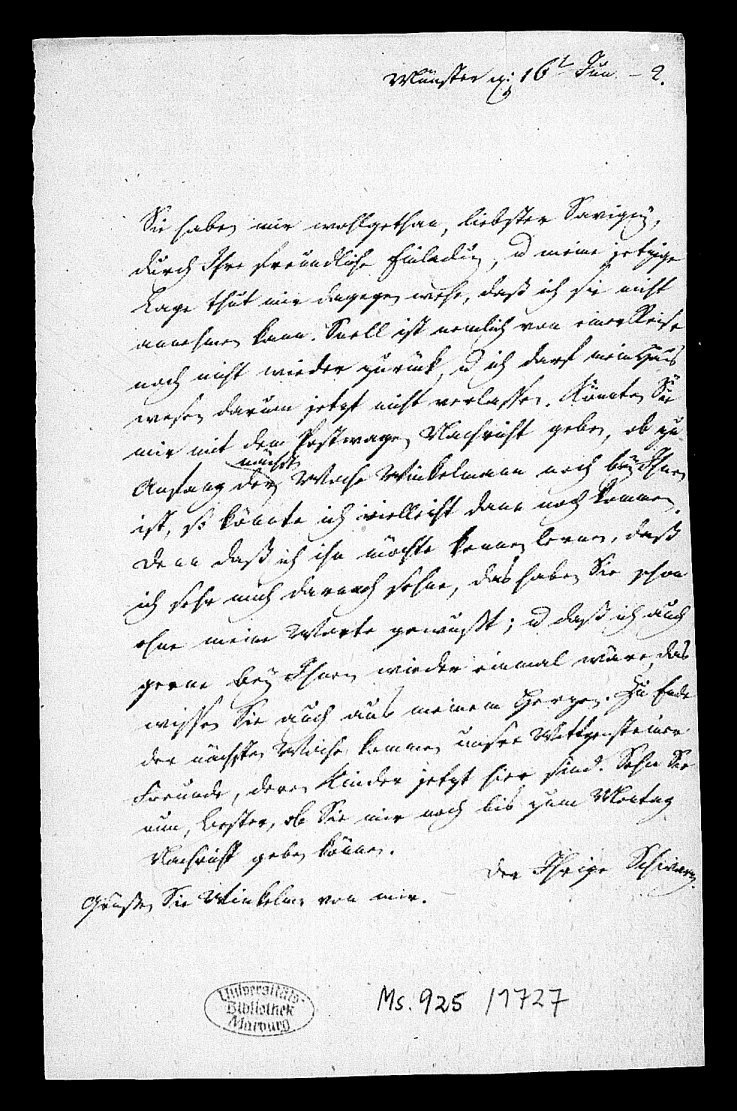 Münster 16t Jun – 2.
Sie haben mir wohlgethan, liebster Savigny,
durch Ihre freundliche Einladung, u meine jetzige
Lage thut mir dagegen wehe, daß ich sie nicht
annehmen kann. Snell ist nemlich von einer Reise
noch nicht wieder zurück, u ich darf mein Haus
wesen darum jetzt nicht verlassen. Könnten Sie
mir mit dem Postwagen Nachricht geben, ob zu
Anfang der nächst Woche Winkelmann noch bey Ihnen
ist, so könnte ich vielleicht dann noch kommen.
Denn daß ich ihn möchte kennen lernen, daß
ich sehr mich darnach sehne, das haben Sie schon
ohne meine Worte gewußt; u daß ich auch
gerne bey Ihnen wieder einmal wäre, das
wissen Sie auch aus meinem Herzen. Zu Ende
der nächsten Woche kommen unsre Wittgensteiner
Freunde, deren Kinder jetzt hier sind. Sehn Sie
nun, bester, ob Sie mir noch bis zum Montag
Nachricht geben können.
Der Ihrige Schwarz.
Grüßen Sie Winkelm von mir.
Universitäts-
Bibliothek
Marburg
Ms. 925 /1727